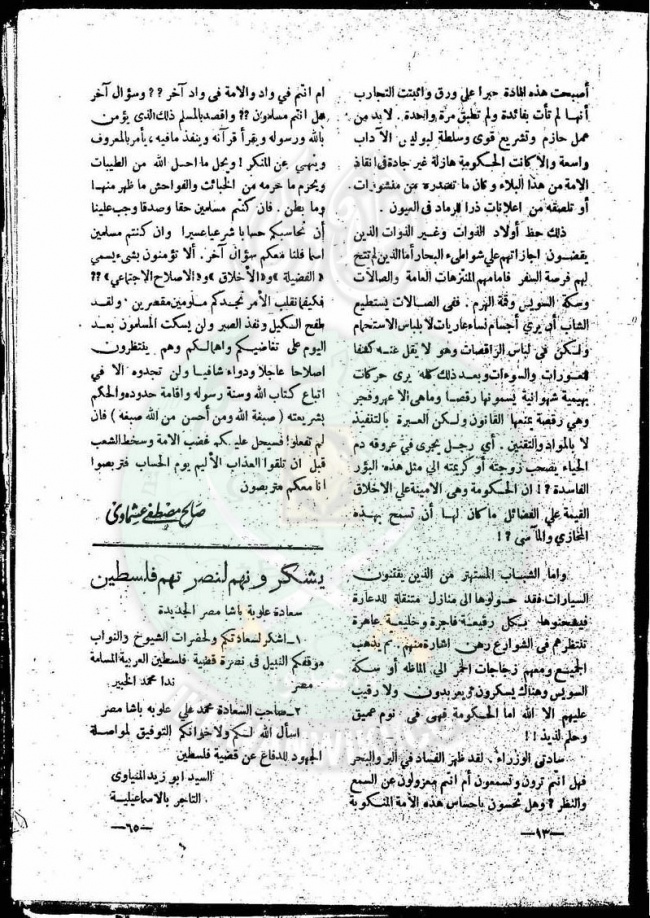 أصبحت هذه المادة حبرا على ورق واثبتت التجارب
أنها لم تأت بفائدة ولم تطبق مرة واحدة . لا بد من
عمل حازم وتشريع قوى وسلطة لبوليس الآداب
واسعة والا كانت الحكومة هازلة غير جادة فى انقاذ
الامة من هذا البلاء وكان ما تصدره من منشورات
أو تلصقه من اعلانات ذرا للرماد فى العيون .
ذلك حظ أولاد الذوات وغير الذوات الذين
يقضون اجازاتهم على شواطىء البحار أما الذين لم تتح
لهم فرصة السفر فامامهم المنتزهات العامة والصالات
وسكة السويس وقمة الهرم . ففى الصالات يستطيع
الشاب أن يرى أجسام نساء عاريات لا بلباس الاستحمام
ولكن فى لباس الراقصات وهو لا يقل عنه كشفا
للعورات والسوءات وبعد ذلك كله يرى حركات
بهيمية شهوانية يسمونها رقصا وما هى الا عهر وفجر
وهى رقصة يمنعها القانون ولكن العبرة بالتنفيذ
لا بالمواد والتقنين . أي رجل يجرى فى عروقه دم
الحياء يصحب زوجته أو كريمته الى مثل هذه البؤر
الفاسدة ؟! ان الحكومة وهى الامينة على الاخلاق
القيمة على الفضائل ما كان لها أن تسمح بهذه
المخازي والمآسى ؟!
واما الشباب المستهتر من الذين يقتنون
السيارات فقد حولوها الى منازل متنقلة للدعارة
فيشحنوها بكل رقيعة فاجرة وخليعة عاهرة
تنتظرهم فى الشوارع رهن اشارة منهم . ثم يذهب
الجميع ومعهم زجاجات الخمر الى الماظه أو سكة
السويس وهناك يسكرون ويعربدون ولا رقيب
عليهم الا الله اما الحكومة فهى فى نوم عميق
وحلم لذيذ !!
سادتى الوزراء . لقد ظهر الفساد فى البر والبحر
فهل انتم ترون وتسمعون أم انتم معزولون عن السمع
والنظر ؟ وهل تحسون باحساس هذه الأمة المنكوبة
—١٣—
ام انتم فى واد والامة فى واد آخر ؟؟ وسؤال آخر
هل انتم مسلمون ؟؟ واقصد بالمسلم ذلك الذى يؤمن
بالله ورسوله ويقرأ قرآنه وينفذ مافيه ، يأمر بالمعروف
وينهى عن المنكر ! ويحل ما احل الله من الطيبات
ويحرم ما حرمه من الخبائث والفواحش ما ظهر منها
وما بطن . فان كنتم مسلمين حقا وصدقا وجب علينا
أن نحاسبكم حسابا شرعيا عسيرا وان كنتم مسلمين
اسما فلنا معكم سؤال آخر . ألا تؤمنون بشىء يسمى
« الفضيلة » و« الأخلاق » و« الاصلاح الاجتماعي » ??
فكيفما نقلب الأمر نجدكم ملومين مقصرين . ولقد
طفح الكيل ونفذ الصبر ولن يسكت المسلمون بعد
اليوم على تغاضيكم واهمالكم وهم ينتظرون
اصلاحا عاجلا ودواء شافيا ولن تجدوه الا فى
اتباع كتاب الله وسنة رسوله واقامة حدوده والحكم
بشريعته ( صبغة الله ومن أحسن من الله صبغة ) فان
لم تفعلوا فسيحل عليكم غضب الامة وسخط الشعب
قبل ان تلقوا العذاب الأليم يوم الحساب فتربصوا
انا معكم متربصون
صالح مصطفى عشماوى
يشكرونهم لنصرتهم فلسطين
سعادة علوبة باشا مصر الجديدة
١ــ اشكر لسعادتكم ولحضرات الشيوخ والنواب
موقفكم النبيل فى نصرة قضية فلسطين العربية المسلمة
مصر ندا محمد الخبير
٢ــ صاحب السعادة محمد على علوبه باشا مصر
اسأل الله لكم ولاخوانكم التوفيق لمواصلة
الجهود للدفاع عن قضية فلسطين
السيد ابو زيد المنياوى
التاجر بالاسماعيلية
—٦٥—